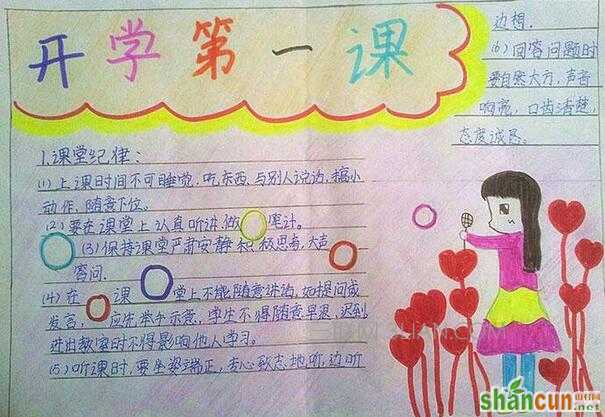 开学第一课
1.课堂纪律:
(1)上课时间不可睡觉,吃东西,与别人说话,搞小
动作,随意下位。
(2)要在课堂上认真听讲,做笔计。
(3)保持课堂严肃安静积极思考,大声
答问.
(4)在课堂上不能随意讲话,如提问或
发言,应先举手示意,学生不得随意早退,迟到
进出教室时不得影响他人学习。
(5)听课时,要坐姿端正,专心致志地听,边听
边想.
(6)回答问题时
要自然大方,声音
响亮,口齿清楚,
态度诚恳。
shancun
山村网
.net